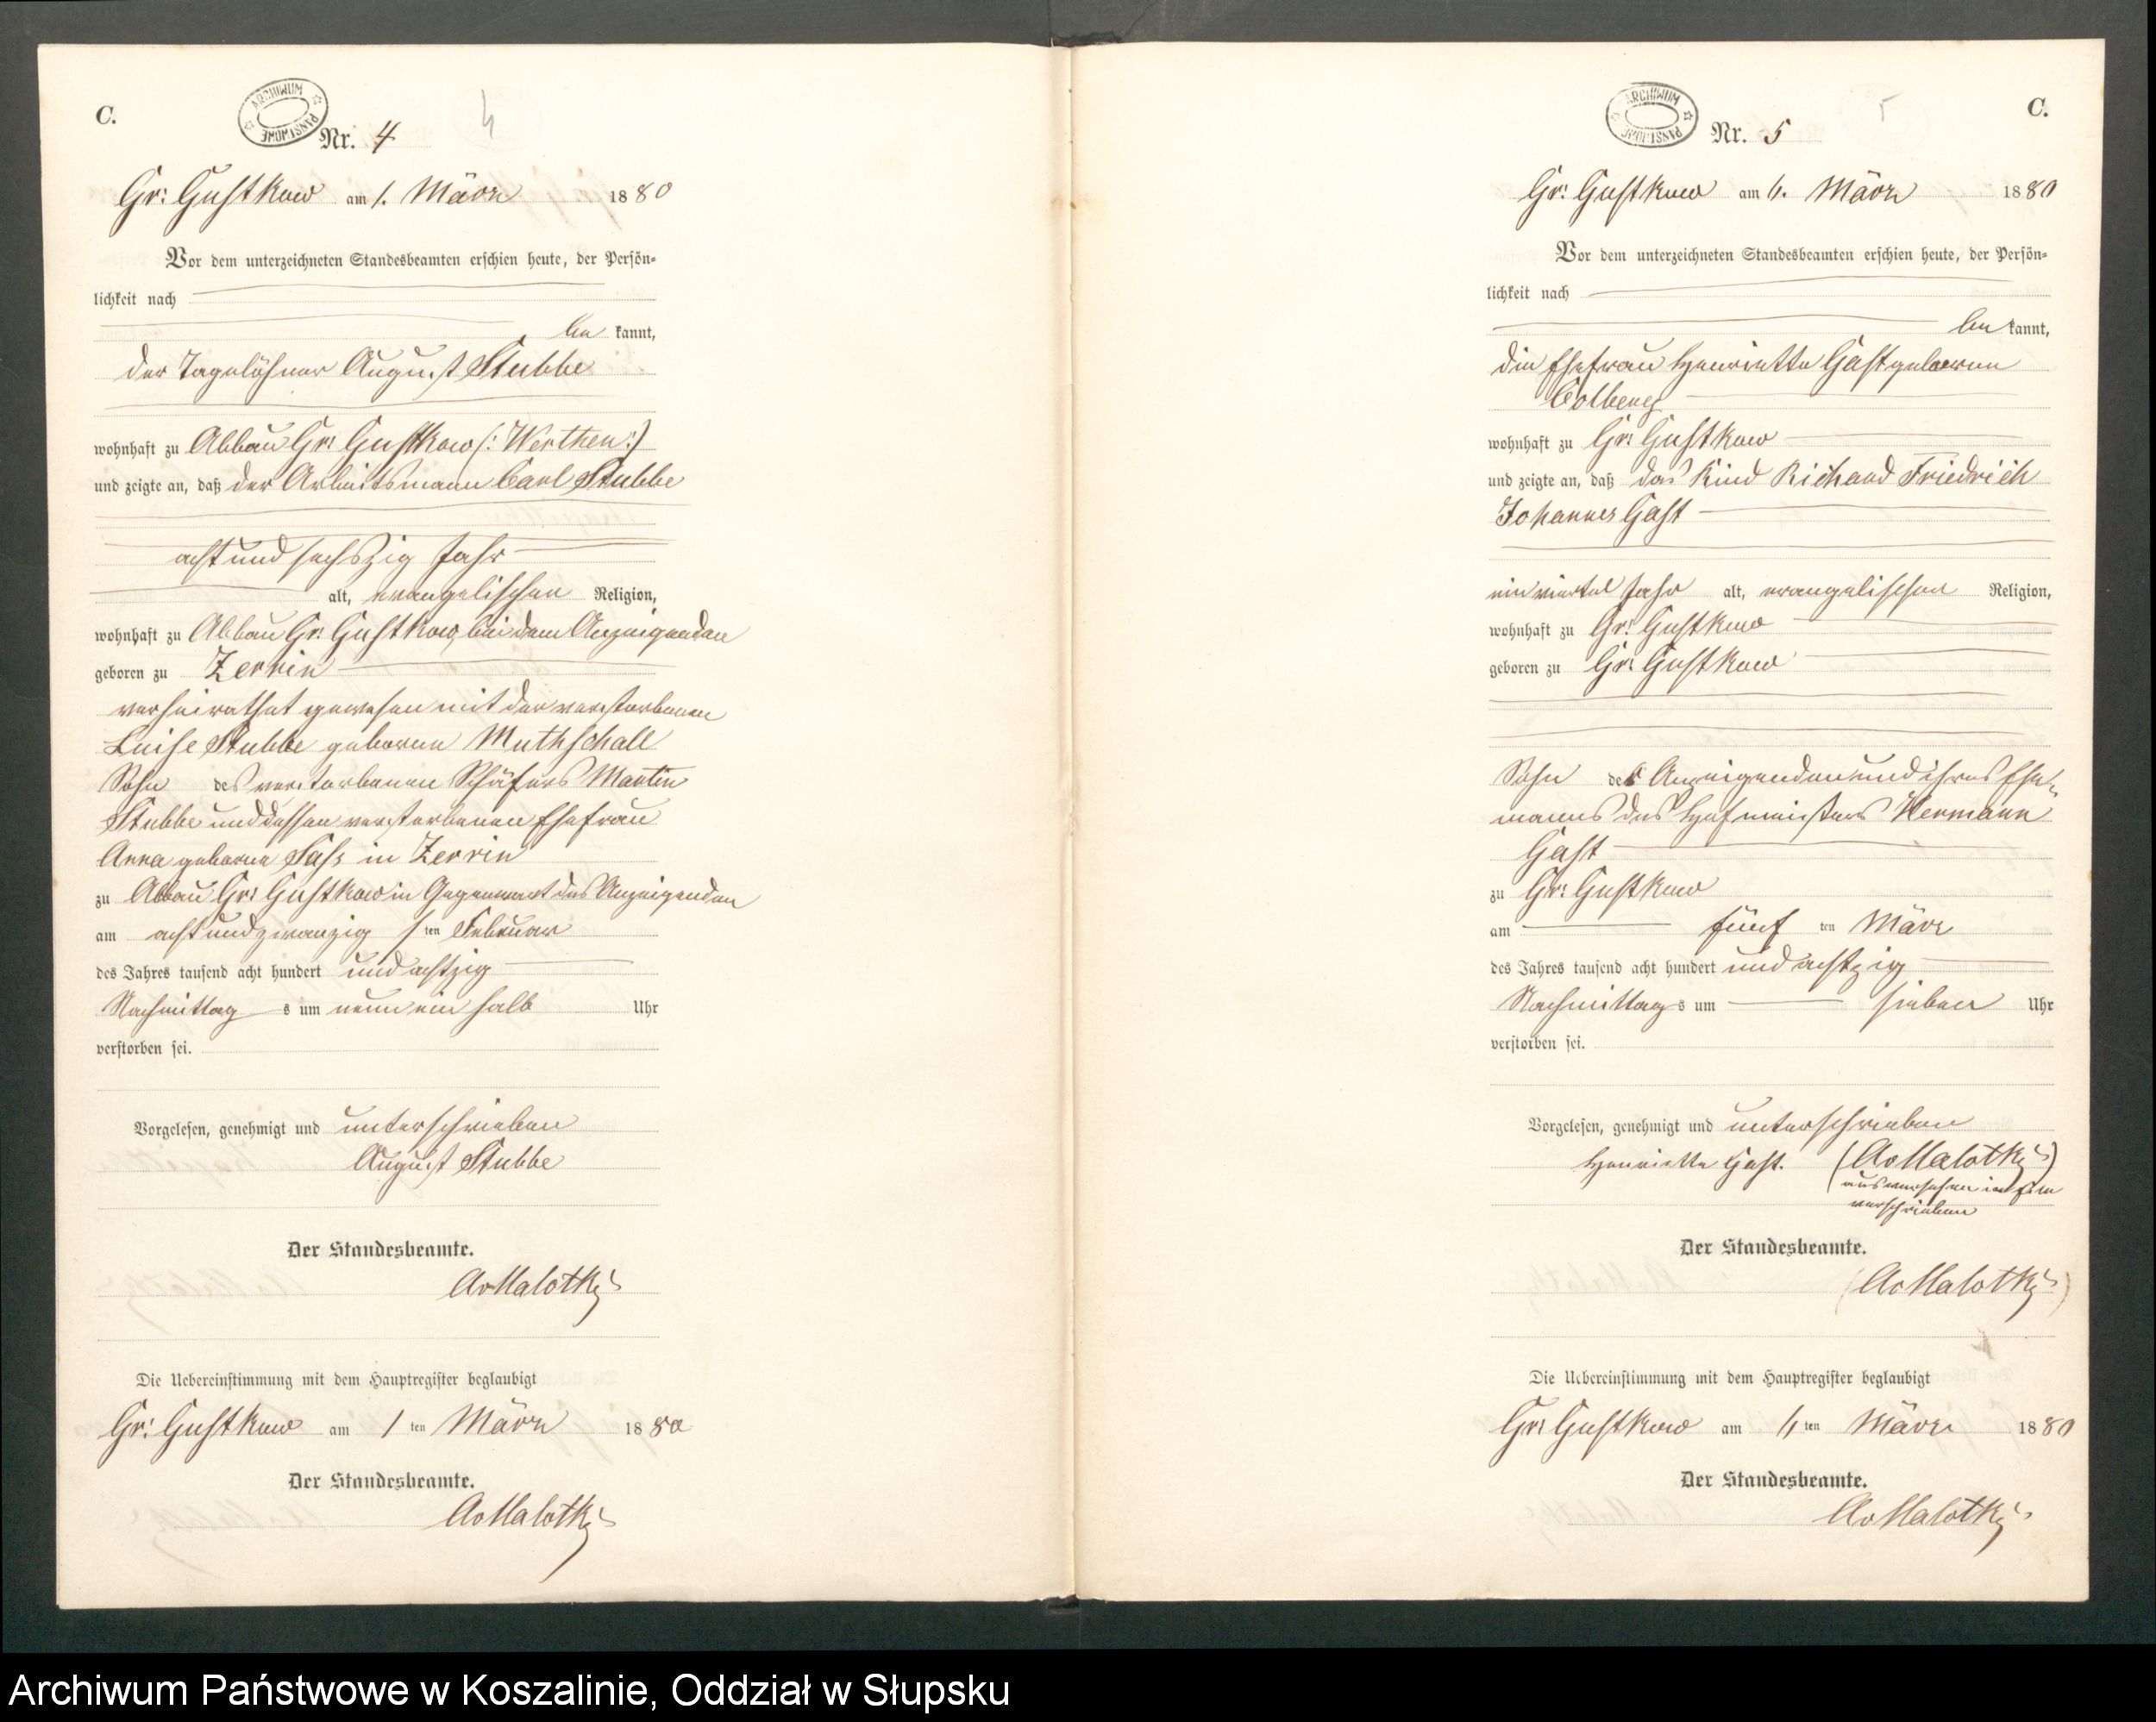 C.
ARCHIWUM PAŃSTWOWE
Nr. 4
4
Gr: Gustkow am 1. März 1880
Vor dem unterzeichneten Standesbeamten erschien heute, der Persön-
lichkeit nach
be kannt,
der Tagelöhner August Stubbe
wohnhaft zu Abbau Gr: Gustkow (: Werthen :)
und zeigte an, daß der Arbeitsmann Carl Stubbe
acht und sechszig Jahr
alt, evangelischer Religion,
wohnhaft zu Abbau Gr: Gustkow, bei dem Anzeigenden
geboren zu Zerrin
verheirathet gewesen mit der verstorbenen
Luise Stubbe geborene Muthschall
Sohn des verstorbenen Schäfers Martin
Stubbe und dessen verstorbenen Ehefrau
Anna geborne Sass in Zerrin
zu Abbau Gr: Gustkow in Gegenwart des Anzeigenden
am acht und zwanzig sten Februar
des Jahres tausend acht hundert und achtzig
Nachmittag s um neun ein halb Uhr
verstorben sei.
Vorgelesen, genehmigt und unterschrieben
August Stubbe
Der Standesbeamte.
AvMalotky
Die Uebereinstimmung mit dem Hauptregister beglaubigt
Gr: Gustkow am 1 ten März 1880
Der Standesbeamte.
AvMalotky
C.
5
ARCHIWUM PAŃSTWOWE
Nr. 5
Gr: Gustkow am 6. März 1880
Vor dem unterzeichneten Standesbeamten erschien heute, der Persön-
lichkeit nach
be kannt,
die Ehefrau Henriette Gast geborene
Colberg
wohnhaft zu Gr: Gustkow
und zeigte an, daß das Kind Richard Friedrich
Johannes Gast
ein viertel Jahr alt, evangelischer Religion,
wohnhaft zu Gr: Gustkow
geboren zu Gr: Gustkow
Sohn der Anzeigenden und ihres Ehe-
manns des Hofmeisters Hermann
Gast
zu Gr: Gustkow
am fünf ten März
des Jahres tausend acht hundert und achtzig
Nachmittag s um sieben Uhr
verstorben sei.
Vorgelesen, genehmigt und unterschrieben
Henriette Gast. (AvMalotky)
aus versehen hier
verschrieben
Der Standesbeamte.
(AvMalotky)
Die Uebereinstimmung mit dem Hauptregister beglaubigt
Gr: Gustkow am 6 ten März 1880
Der Standesbeamte.
AvMalotky
Archiwum Państwowe w Koszalinie, Oddział w Słupsku